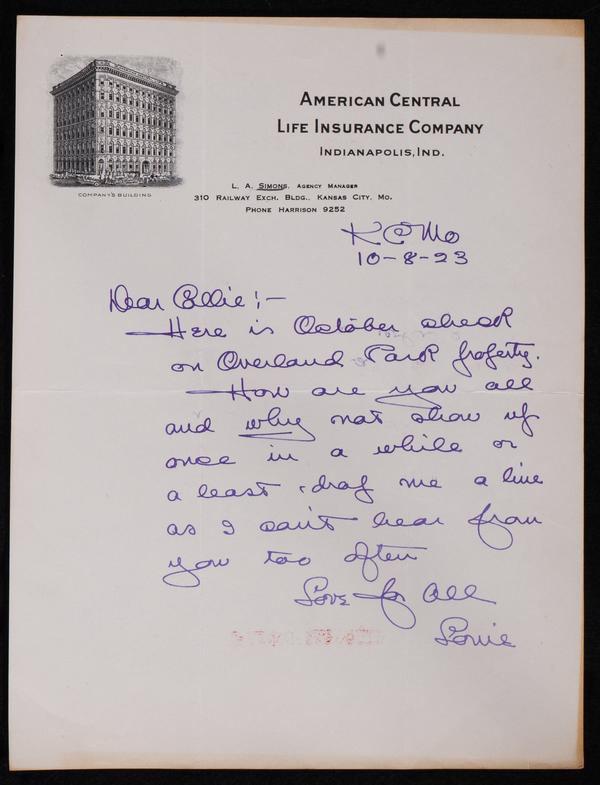 AMERICAN CENTRAL
LIFE INSURANCE COMPANY
INDIANAPOLIS, IND.
COMPANY'S BUILDING
L. A. SIMONS, AGENCY MANAGER
310 RAILWAY EXCH. BLDG., KANSAS CITY, MO.
PHONE HARRISON 9252
K C Mo
10-8-23
Dear Ollie:-
Here is October check
on Overland Park property.
How are you all
and why not show up
once in a while or
a least drop me a line
as I can't hear from
you too often
Love for All
Louie